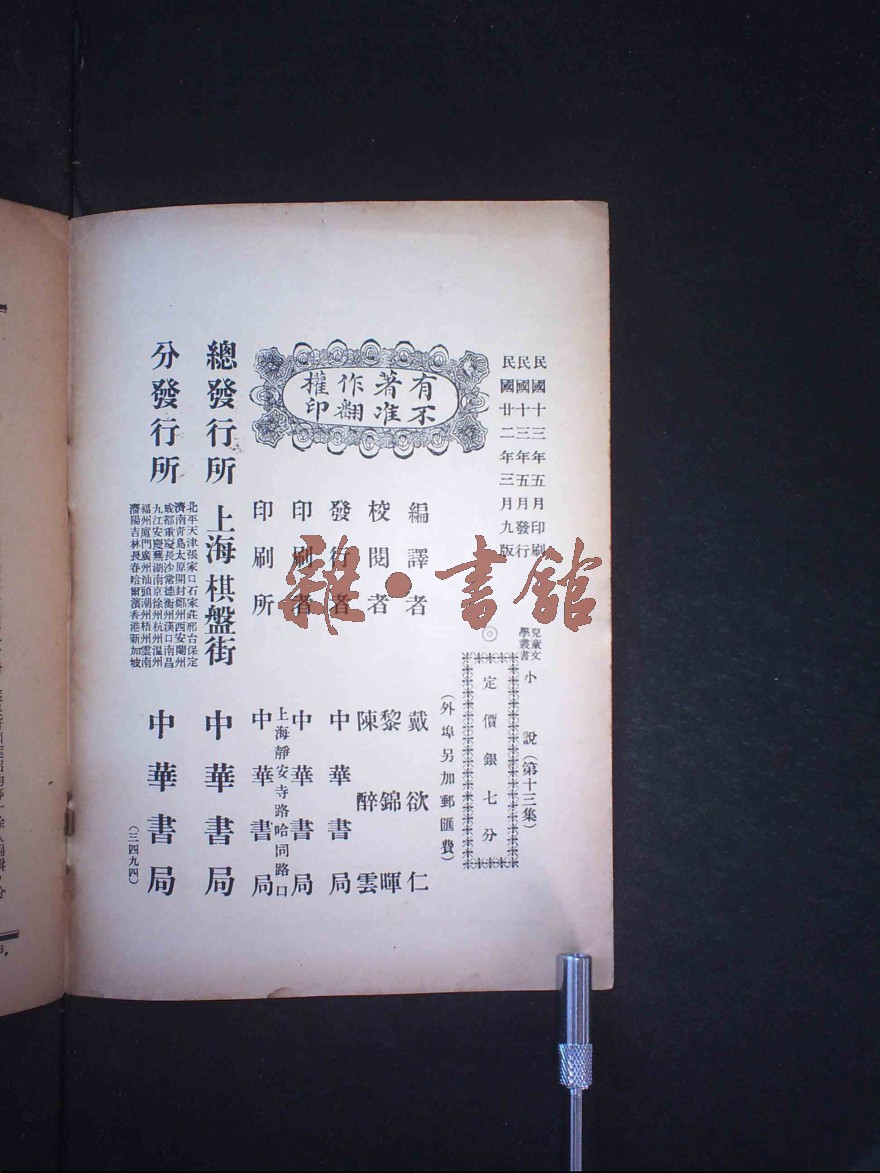 民國十三年五月印刷
民國十三年五月發行
民國廿二年三月九版
兒童文學叢書
小說（第十三集）
◎
定價銀七分
（外埠另加郵匯費）
有著作權
不准翻印
編譯者 戴欲仁
校閱者 黎錦暉 陳醉雲
發行者 中華書局
印刷者 中華書局
印刷所 上海靜安寺路哈同路口 中華書局
總發行所 上海棋盤街 中華書局
分發行所
北平天津張家口石家莊邢台保定
濟南青島太原開封鄭州西安蘭州
成都重慶長沙常德衡州漢口南昌
九江安慶蕪湖南京徐州杭州溫州
福州廈門廣州汕頭潮州梧州雲南
瀋陽吉林長春哈爾濱香港新加坡
中華書局
（三四九四）
雜·書館